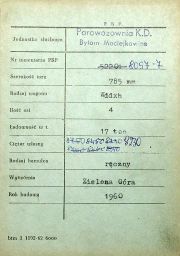 P K P
Jednostka służbowa
Parowozownia K.D.
Bytom Maciejkowice
Nr inwentarza PKP
8097-7
Szerokość toru
785 mm
Rodzaj wagonu
Ilość osi
4
Ładowność w t.
17 ton
Ciężar własny
8770
Rodzaj hamulca
ręczny
Wytwórnia
Zielona Góra
Rok budowy
1960